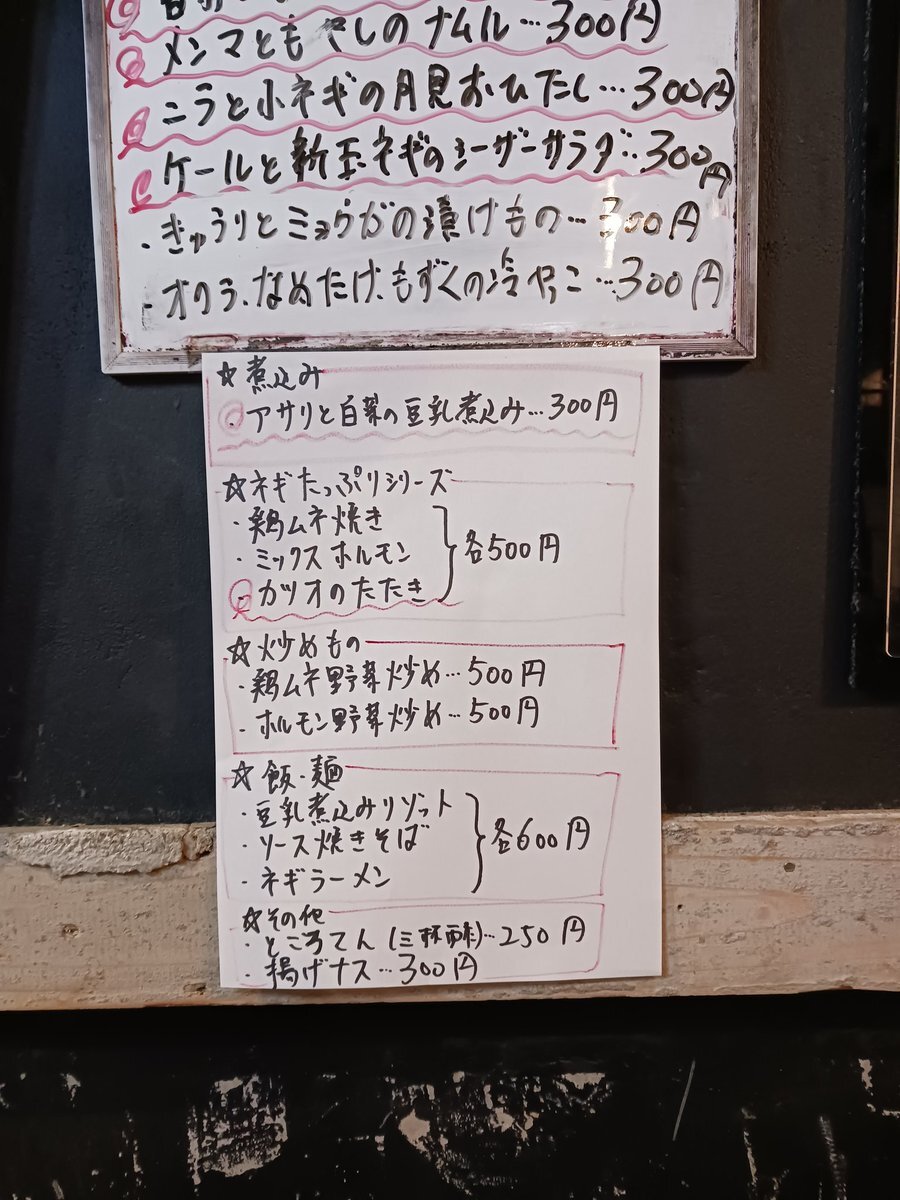 メンマともやしのナムル…300円
ニラと小ネギの月見おひたし…300円
ケールと新玉ネギのシーザーサラダ…300円
・きゅうりとミョウガの漬けもの…300円
・オクラ、なめたけ、もずくの冷やっこ…300円
☆煮込み
・アサリと白菜の豆乳煮込み…300円
☆ネギたっぷりシリーズ
・鶏ムネ焼き
・ミックスホルモン
各500円
・カツオのたたき
☆炒めもの
・鶏ムネ野菜炒め…500円
・ホルモン野菜炒め…500円
☆飯・麺
・豆乳煮込みリゾット
・ソース焼きそば
各600円
・ネギラーメン
☆その他
・ところてん(三杯酢)…250円
・揚げナス…300円